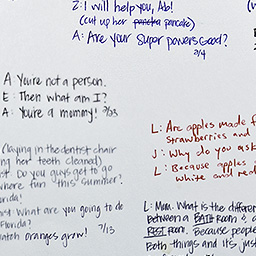 Z: I will help you, Ab!
(cut up her pancake)
A: Are your super powers Good?
2/4
A You're not a person.
E: Then what am I?
A: You're a mommy! 2/23
(laying in the dentist chair
ng her teeth cleaned)
st. Do you guys get to go
where fun this summer?
orida!
st: What are you going to do
Florida?
atch oranges grow! 7/13
L: Are apples made f
strawberries and
J: Why do you ask
L: Because apples
white and red
L: Mom. What is the differen
between a BATH room & a
REST room. Because people
Both things and it's just